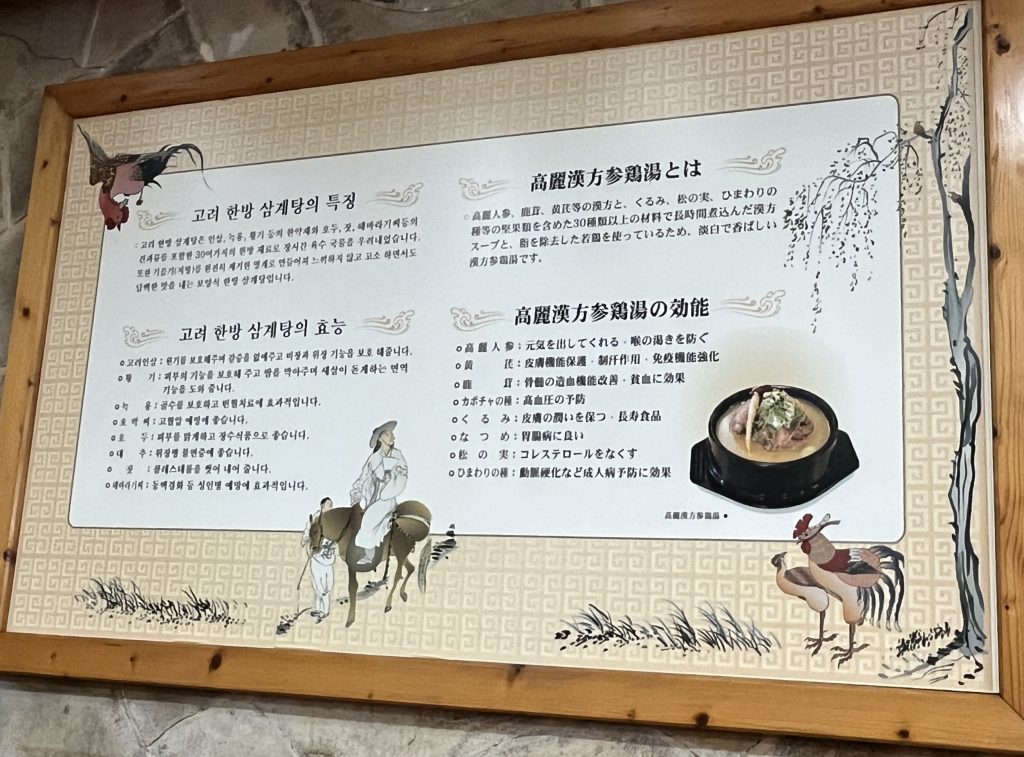 고려 한방 삼계탕의 특징
고려 한방 삼계탕은 인삼, 녹용, 황기 등의 한약재와 호두, 잣, 해바라기씨등의
견과류를 포함한 30여가지의 한방 재료로 장시간 육수 국물을 우려내었습니다.
또한 기름기(지방)를 완전히 제거한 영계로 만들어져 느끼하지 않고 고소 하면서도
담백한 맛을 내는 보양식 한방 삼계탕입니다.
고려 한방 삼계탕의 효능
고려인삼 : 원기를 보호해주며 갈증을 없애주고 비장과 위장 기능을 보호 해줍니다.
황 기 : 피부의 기능을 보호해 주고 땀을 막아주며 새살이 돋게하는 면역
기능을 도와 줍니다.
녹 용 : 골수를 보호하고 빈혈치료에 효과적입니다.
호 박 씨 : 고혈압 예방에 좋습니다.
호 두 : 피부를 밝게하고 장수식품으로 좋습니다.
대 추 : 위장병 불면증에 좋습니다.
잣 : 콜레스테롤을 씻어 내어 줍니다.
해바라기씨 : 동맥경화 등 성인병 예방에 효과적입니다.
高麗漢方参鶏湯とは
高麗人参、鹿茸、黄芪等の漢方と、くるみ、松の実、ひまわりの
種等の堅果類を含めた30種類以上の材料で長時間煮込んだ漢方
スープと、脂を除去した若鶏を使っているため、淡白で香ばしい
漢方参鶏湯です。
高麗漢方参鶏湯の効能
高 麗 人 参 : 元気を出してくれる · 喉の渇きを防ぐ
黄 芪 : 皮膚機能保護 · 制汗作用 · 免疫機能強化
鹿 茸 : 骨髄の造血機能改善 · 貧血に効果
カボチャの種 : 高血圧の予防
く る み : 皮膚の潤いを保つ · 長寿食品
な つ め : 胃腸病に良い
松 の 実 : コレステロールをなくす
ひまわりの種 : 動脈硬化など成人病予防に効果
高麗漢方参鶏湯